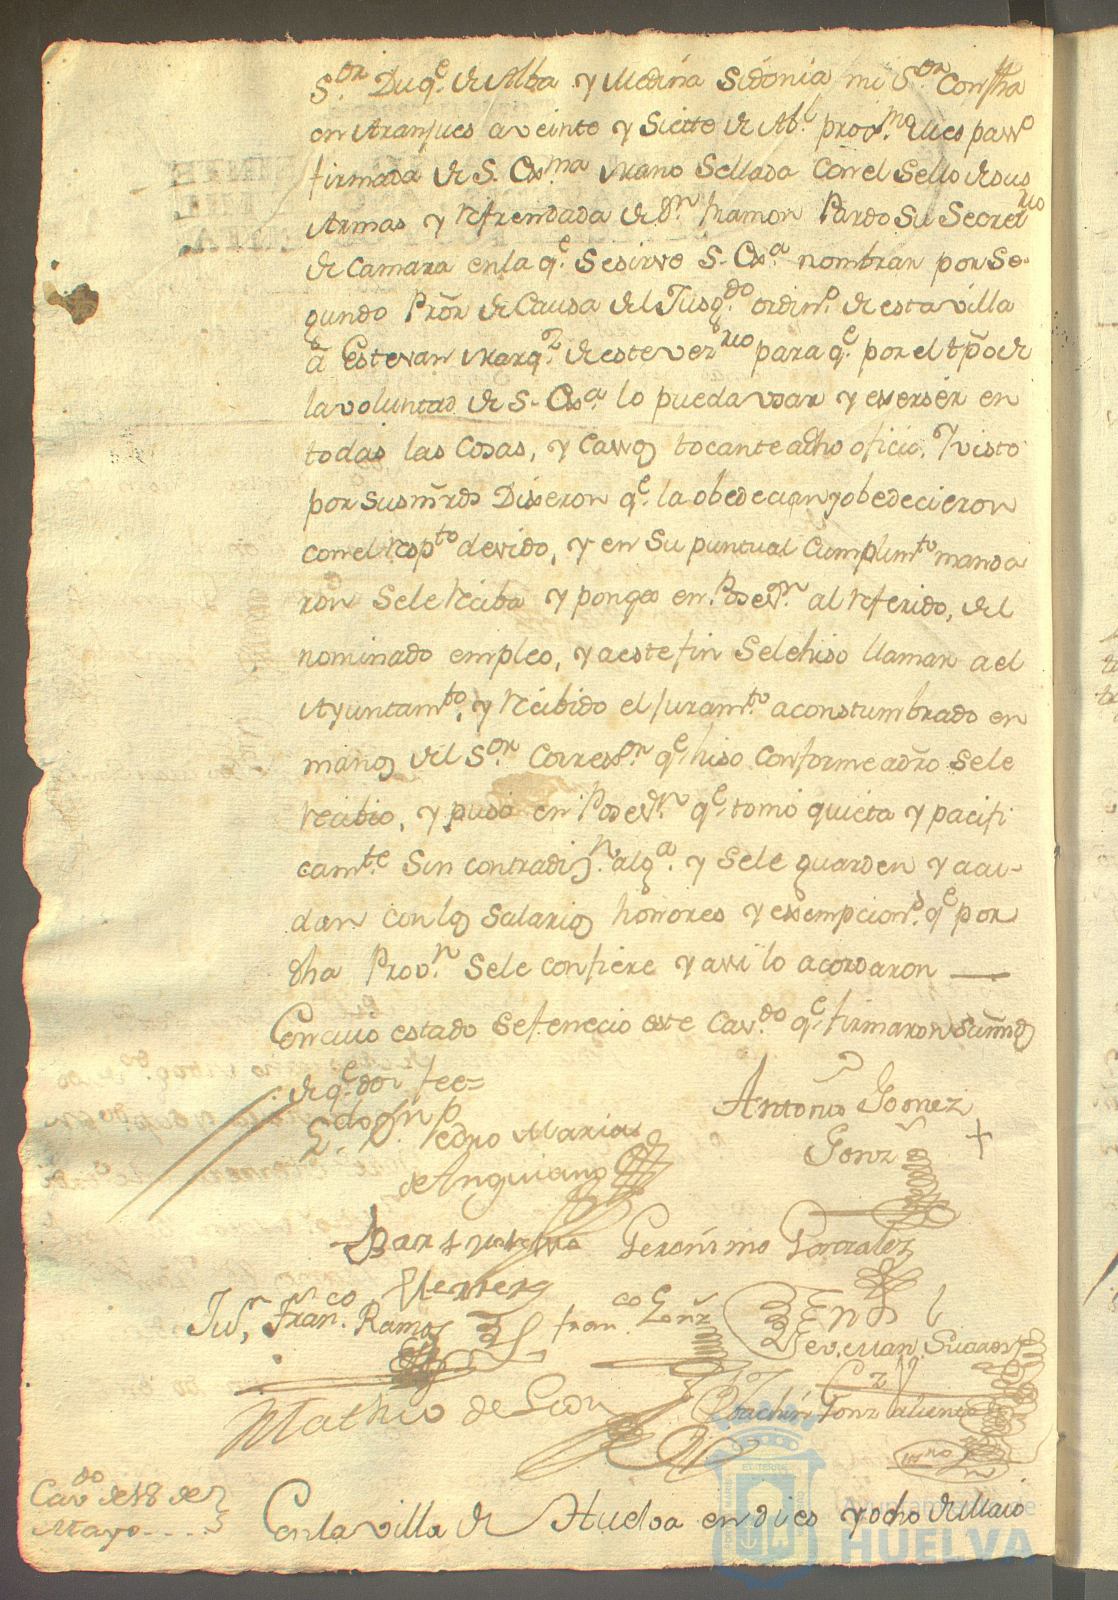 S.or Duq.e de Alba y Medina Sidonia mi S.or Con fha
en Aranjues a veinte y Siette de Ab.l prox.mo Mes pass.o
firmada de S. Ex.ma Mano Sellada con el Sello de sus
Armas y Refrendada de D.n Ramon Pardo Su Secret.rio
de Camara en la q.e Se sirve S. Ex.a nombrar por Se-
gundo Pror de Causa del Jusg.do ordin.o de esta villa
a Estevan Marq.z de este vez.rio para q.e por el tpo de
la voluntad de S. Ex.a lo pueda usar y exerser en
todas las Cosas, y Cassos tocante a dho oficio. Y visto
por sus mrds Dixeron q.e la obedecian y obedecieron
con el Resp.to devido, y en Su puntual Cumplim.to manda
ron Se le Reciba y ponga en Posess.n al Referido, del
nominado empleo, y a este fin Se le hiso llamar a el
Ayuntam.to, y Recibido el Juram.to acostumbrado en
manos del S.or Correx.or q.e hiso conforme a dro Se le
Recibio, y puso en Posess.n q.e tomó quieta y pacifi
cam.te Sin contradiz.n alg.a y Se le guarden y acu-
dan con los Salarios honores y exempcion.s q.e por
dha Prov.n Se le confiere y assi lo acordaron
En cuio estado Se fenecio este Cav.do q.e firmaron Sus mds
de q.e doi fee=
Antonio Gomez
Ldo D.n Pedro Maria
Gonz
de Anguiano
Geronimo Gonzalez
Herrera
Ju.n Fran.co Ramos
Fran.co Gonz
Joachin Gonz
Mathio de Leon
Cav.do de 18 de
Mayo
En la villa de Huelva en dies y ocho de Maio
Ayuntamiento de
HUELVA